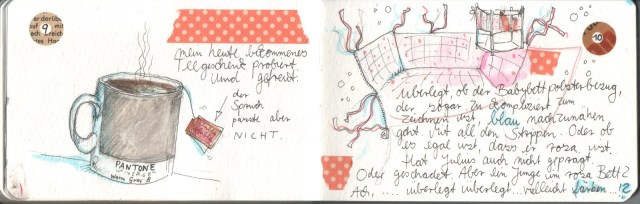 9
mein heute bekommenes
Teegeschenk probiert.
und gefreut.
der
Spruch
passte aber
NICHT.
PANTONE
UNIVERSE
Warm Gray 8
10
überlegt, ob der Babybettpolsterbezug,
der sogar zu kompliziert zum
zeichnen ist, blau nachzunähen
geht. Mit all den Strippen. Oder ob
es egal ist, dass er rosa ist.
Hat Julius auch nicht geprägt.
Oder geschadet. Aber ein Junge im rosa Bett?
Ach, .... überlegt überlegt... vielleicht färben...!?